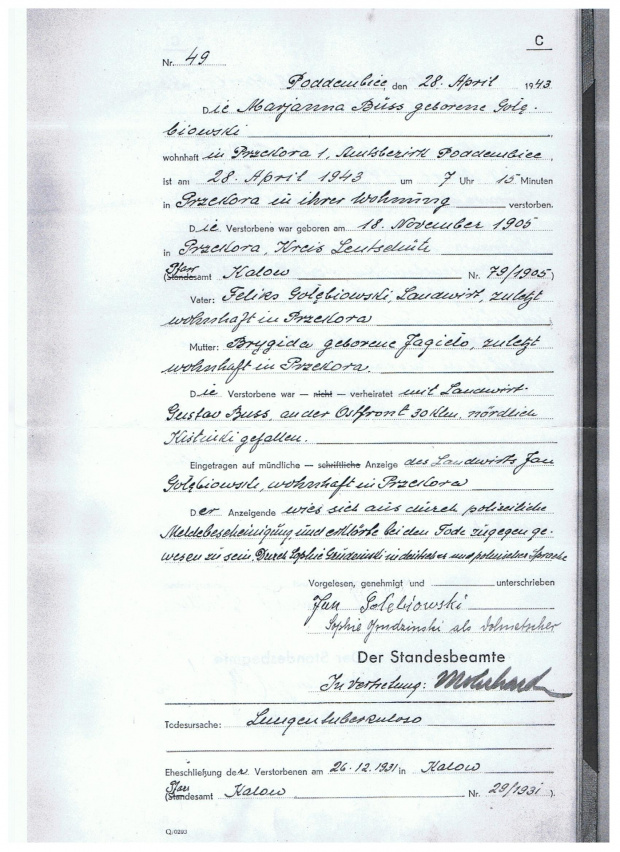 C
Nr. 49
Poddembice, den 28. April 1943
Die Marjanna Büss geborene Golę-
biowski
wohnhaft in Przekora 1, Amtsbezirk Poddembice,
ist am 28. April 1943 um 7 Uhr 15 Minuten
in Przekora in ihrer Wohnung verstorben.
Die Verstorbene war geboren am 18. November 1905
in Przekora, Kreis Lentschütz
Pfarr
(Standesamt Kalow Nr. 79/1905)
Vater: Feliks Golębiowski, Landwirt, zuletzt
wohnhaft in Przekora
Mutter: Brygida geborene Jagieło, zuletzt
wohnhaft in Przekora.
Die Verstorbene war — nicht — verheiratet mit Landwirt
Gustav Buss, an der Ostfront 30 Klm. nördlich
gefallen.
Eingetragen auf mündliche — schriftliche Anzeige des Landwirts Jan
Golębiowski, wohnhaft in Przekora
Der Anzeigende wies sich aus durch polizeiliche
Meldebescheinigung und erklärte bei dem Tode zugegen ge-
wesen zu sein. Durch Sophie Grudzinski in deutscher und polnischer Sprache
Vorgelesen, genehmigt und unterschrieben
Jan Golębiowski
Sophie Grudzinski als Dolmetscher
Der Standesbeamte
In Vertretung:
Todesursache: Lungentuberkulose
Eheschließung der Verstorbenen am 26.12.1931 in Kalow
Pfarr
(Standesamt Kalow Nr. 29/1931).
Q/0293